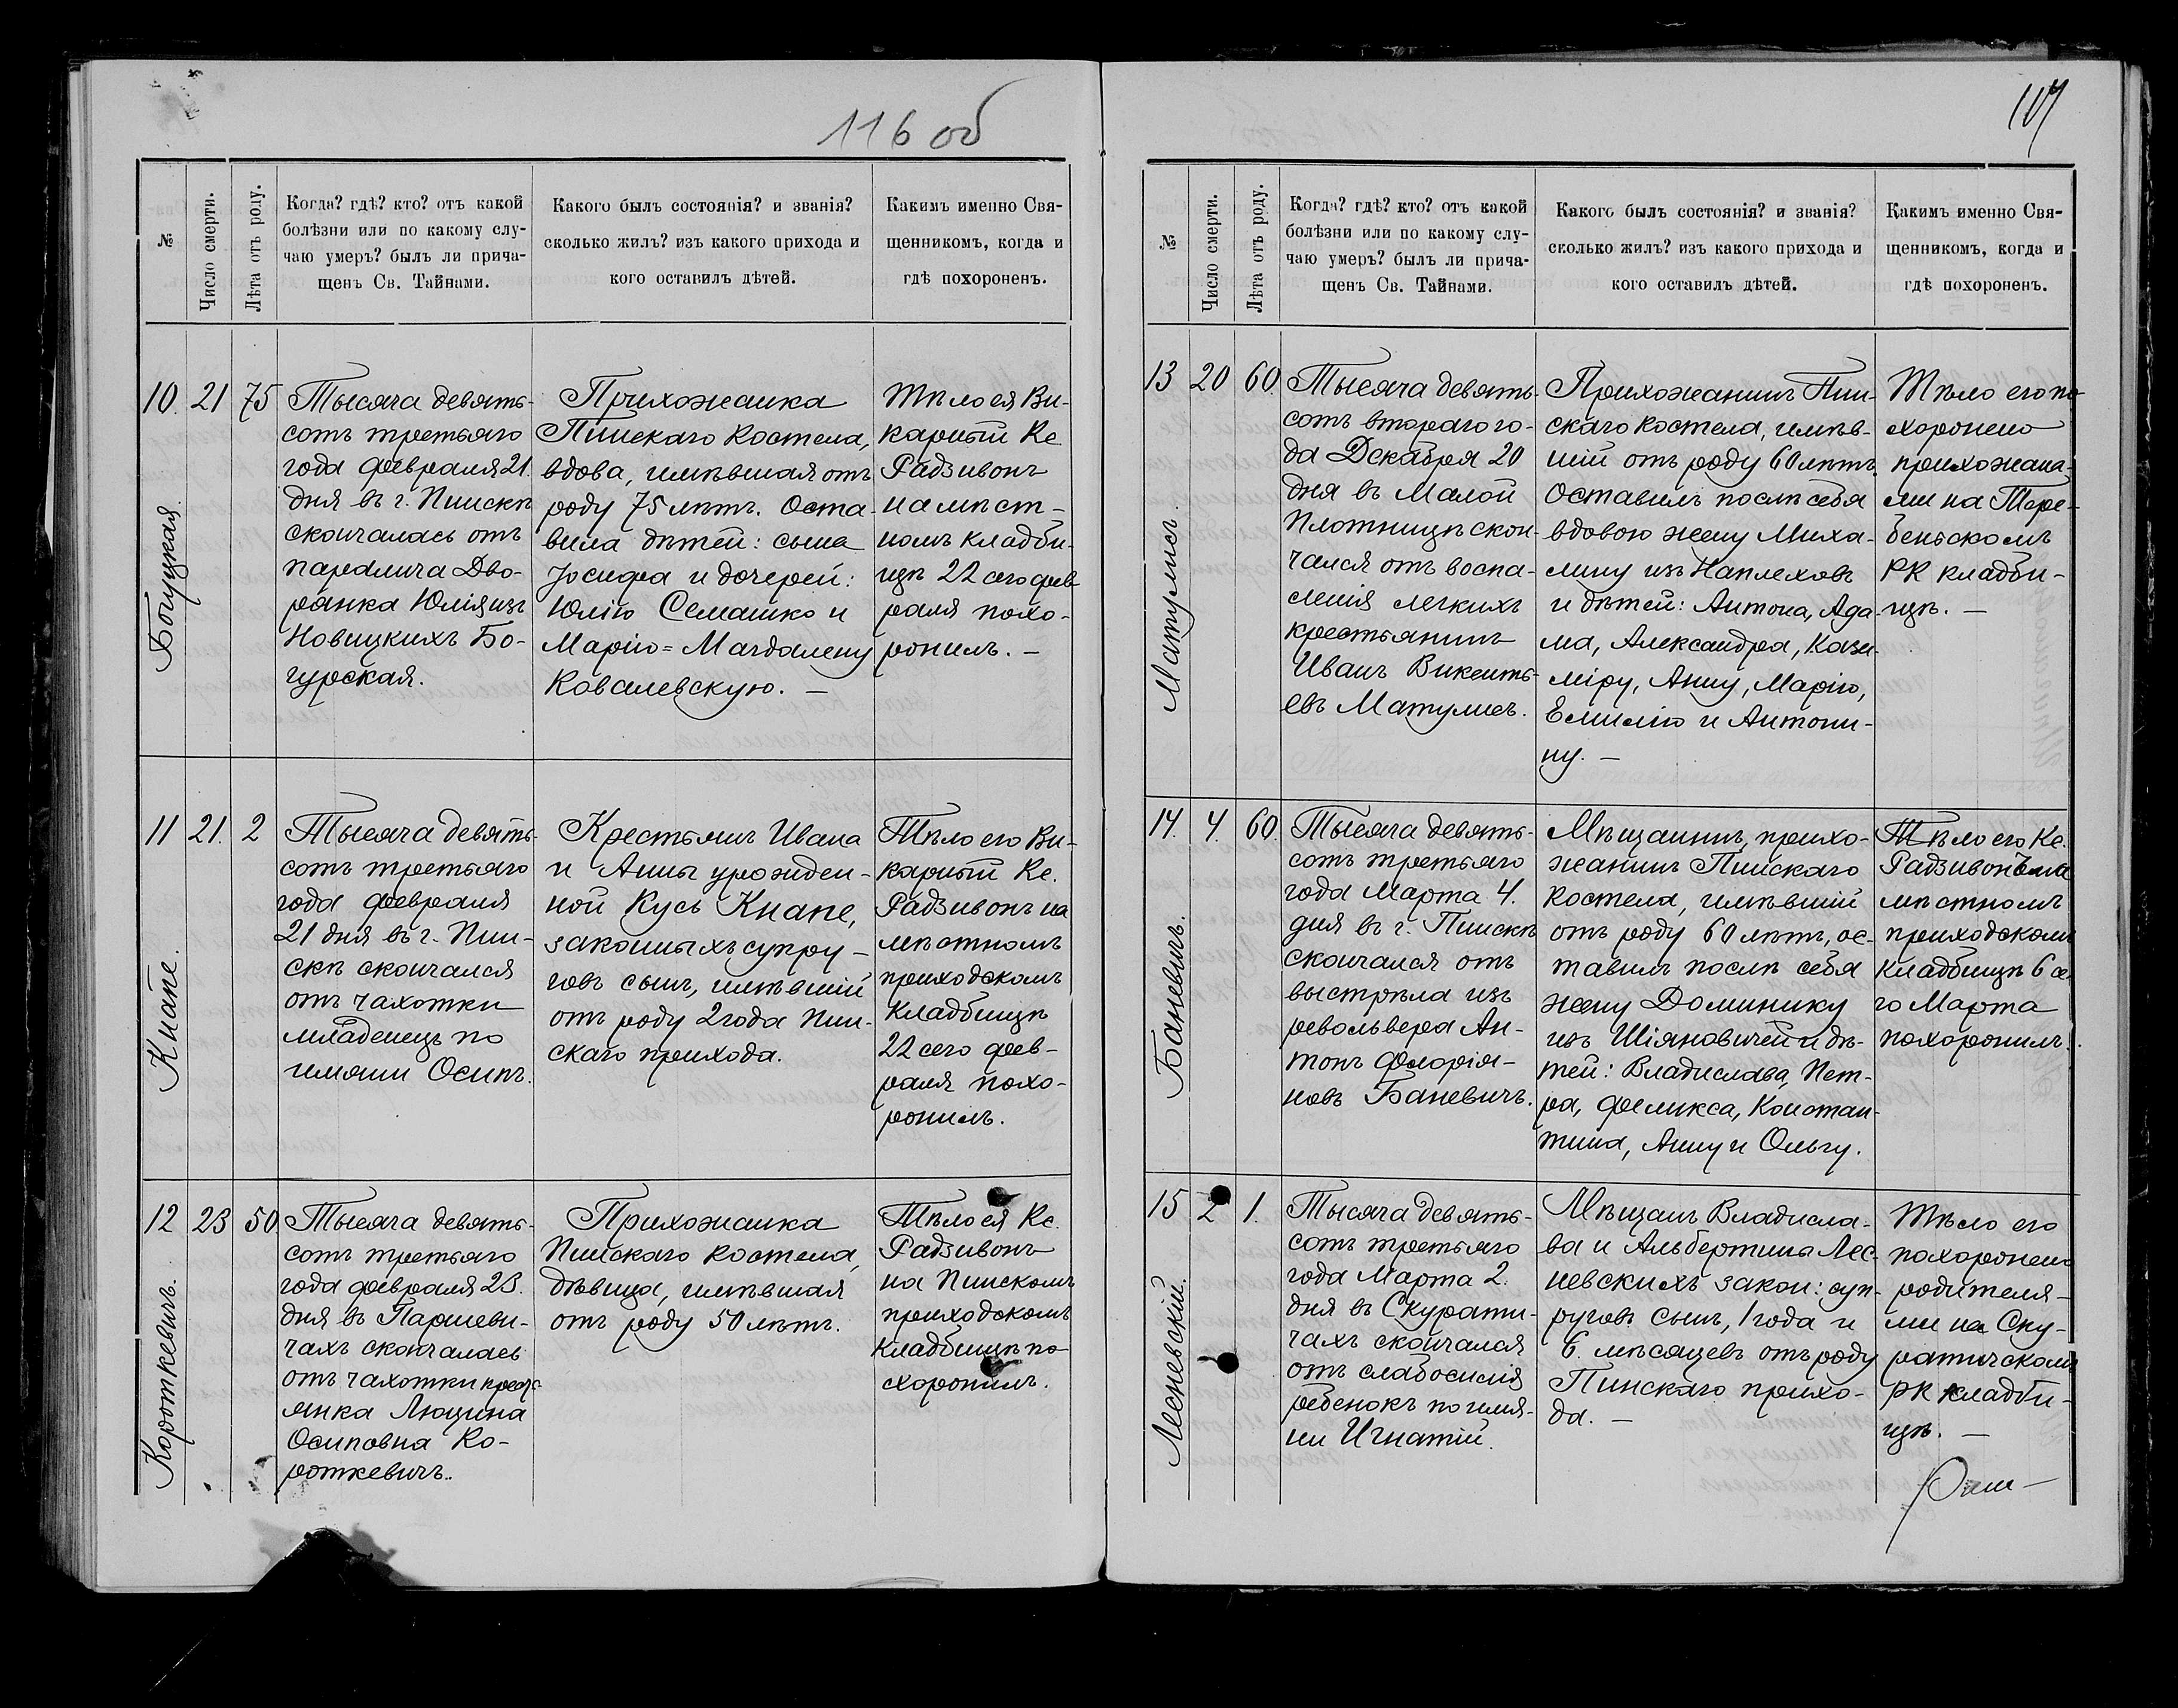 116 об
№
Число смерти.
Лѣта отъ роду.
Когда? гдѣ? кто? отъ какой
болѣзни или по какому слу-
чаю умеръ? былъ ли прича-
щенъ Св. Тайнами.
Какого былъ состоянія? и званія?
сколько жилъ? изъ какого прихода и
кого оставилъ дѣтей.
Какимъ именно Свя-
щенникомъ, когда и
гдѣ похороненъ.
10. 21 75
Тысяча девять-
сотъ третьяго
года февраля 21.
дня въ г. Пинскѣ
скончалась отъ
паралича Дво-
рянка Юлія изъ
Новицкихъ Бо-
гурская.
Прихожанка
Пинскаго Костела,
вдова, имѣвшая отъ
роду 75 лѣтъ. Оста-
вила дѣтей: сына
Іосифа и дочерей:
Юлію Семашко и
Марію=Магдалену
Ковалевскую. —
Тѣло ея Ви-
карный Кс.
Радзивонъ
на мѣст-
номъ кладби-
щѣ 22 сего фев-
раля похо-
ронилъ. —
Кнапе.
11 21. 2
Тысяча девять-
сотъ третьяго
года февраля
21 дня въ г. Пин-
скѣ скончался
отъ чахотки
младенецъ по
имени Осипъ.
Крестьянъ Ивана
и Анны урожден-
ной Кусь Кнапе,
законныхъ супру-
говъ сынъ, имѣвшій
отъ роду 2 года Пин-
скаго прихода.
Тѣло его Ви-
карный Кс.
Радзивонъ на
мѣстномъ
приходскомъ
кладбищѣ
22 сего фев-
раля похо-
ронилъ.
Короткевичъ.
12 23 50.
Тысяча девять-
сотъ третьяго
года февраля 23.
дня въ Паршеви-
чахъ скончалась
отъ чахотки крестъ-
янка Люцина
Осиповна Ко-
роткевичъ.
Прихожанка
Пинскаго костела,
дѣвица, имѣвшая
отъ роду 50 лѣтъ.
Тѣло ея Кс.
Радзивонъ
на Пинскомъ
приходскомъ
кладбищѣ по-
хоронилъ.
№
Число смерти.
Лѣта отъ роду.
Когда? гдѣ? кто? отъ какой
болѣзни или по какому слу-
чаю умеръ? былъ ли прича-
щенъ Св. Тайнами.
Какого былъ состоянія? и званія?
сколько жилъ? изъ какого прихода и
кого оставилъ дѣтей.
Какимъ именно Свя-
щенникомъ, когда и
гдѣ похороненъ.
Матулисъ.
13 20 60.
Тысяча девять-
сотъ второго го-
да Декабря 20
дня въ Малой
Плотницѣ скон-
чался отъ воспа-
ленія легкихъ
крестьянинъ
Иванъ Викенть-
евъ Матулисъ.
Прихожанинъ Пин-
скаго костела, имѣв-
шій отъ роду 60 лѣтъ.
Оставилъ послѣ себя
вдовою жену Миха-
лину изъ Наплеховъ
и дѣтей: Антона, Ада-
ма, Александра, Кази-
міру, Анну, Марію,
Емилію и Антони-
ну. —
Тѣло его по-
хоронено
прихожана-
ми на Тере-
беньскомъ
РК кладби-
щѣ. —
Баневичъ.
14. 4. 60.
Тысяча девять-
сотъ третьяго
года Марта 4.
дня въ г. Пинскѣ
скончался отъ
выстрѣла изъ
револьвера Ан-
тонъ Флорія-
новъ Баневичъ.
Мѣщанинъ, прихо-
жанинъ Пинскаго
костела, имѣвшій
отъ роду 60 лѣтъ, ос-
тавилъ послѣ себя
жену Доминику
изъ Шіяновичей и дѣ-
тей: Владислава, Пет-
ра, Феликса, Констан-
тина, Анну и Ольгу.
Тѣло его Кс.
Радзивонъ на
мѣстномъ
приходскомъ
кладбищѣ 6 се-
го Марта
похоронилъ.
Лесневскій.
15 2 1.
Тысяча девять-
сотъ третьяго
года Марта 2.
дня въ Скурати-
чахъ скончался
отъ слабосилія
ребенокъ по имя-
ни Игнатій.
Мѣщанъ Владисла-
ва и Альбертины Лес-
невскихъ закон: суп-
руговъ сынъ, 1 года и
6. мѣсяцевъ отъ роду
Пинскаго прихо-
да. —
Тѣло его
похоронено
родителя-
ми на Ску-
ратичскомъ
РК кладби-
щѣ. —